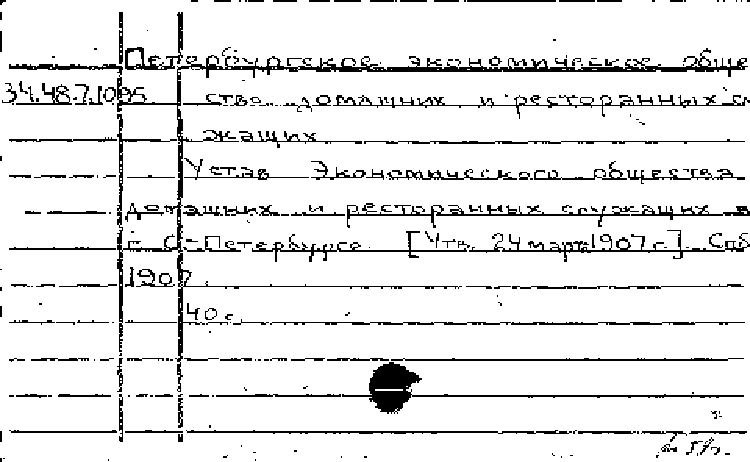 Петербургское экономическое обще
34.48.7.1095 ство домашних и ресторанных сл
жащих
Устав Экономического общества
домашних и ресторанных служащих в
г. С-Петербурге [Утв. 24 марта 1907 г.] Спб
1907.
40 с.